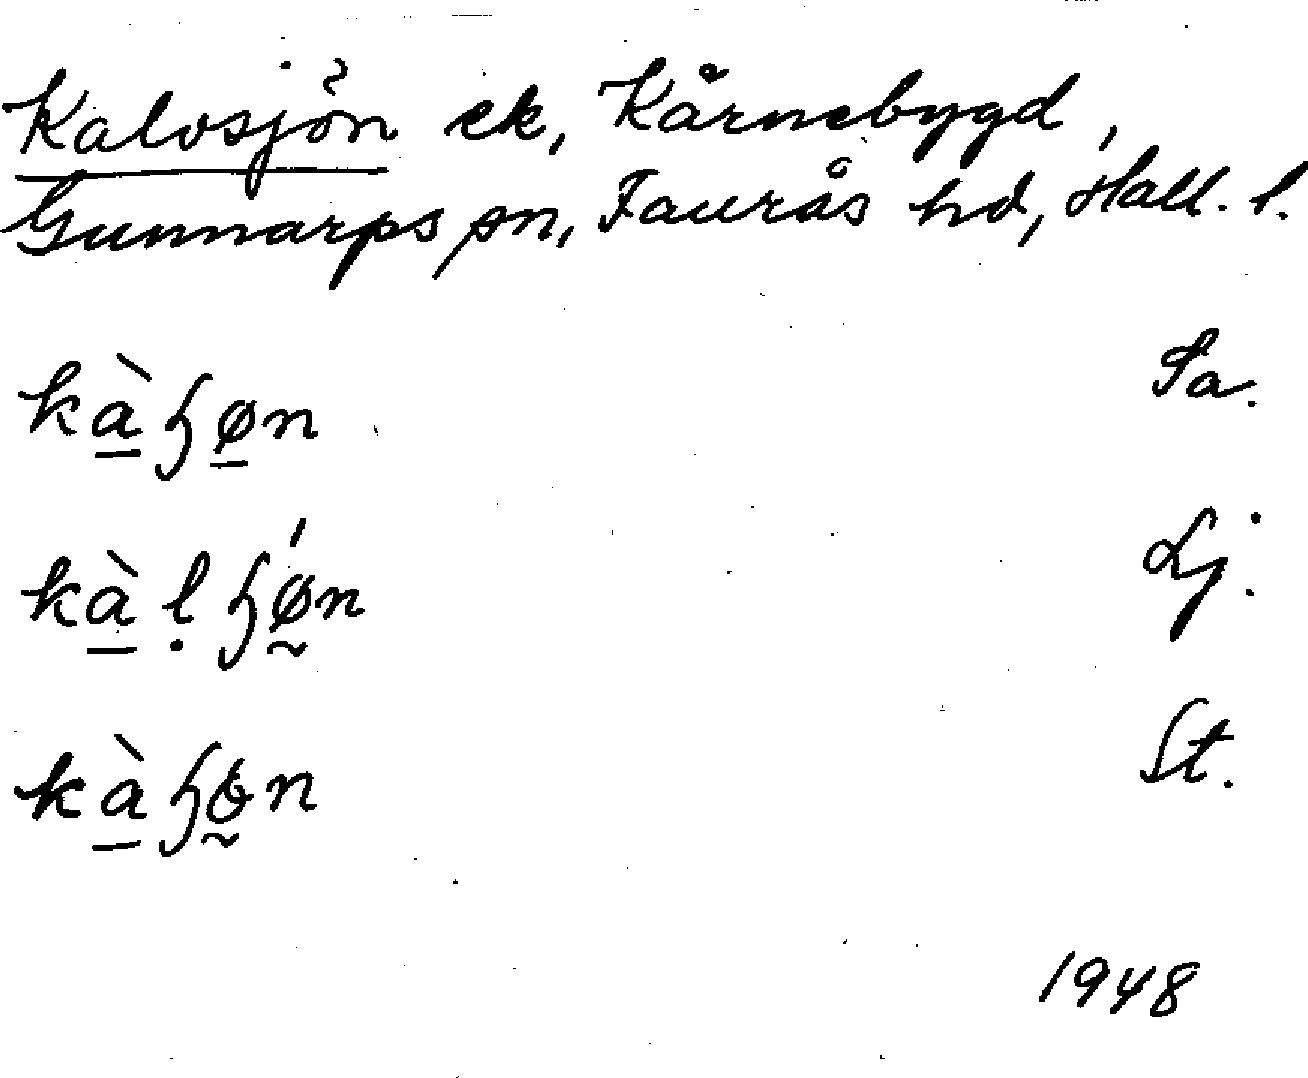 Kalvsjön ek, Kårnebygd,
Gunnarps sn, Faurås hd, Hall. l.
kà̱ɧø̱n Sa.
kà̱ḷɧǿ̰n Lj.
kà̱ɧo̰n St.
1948